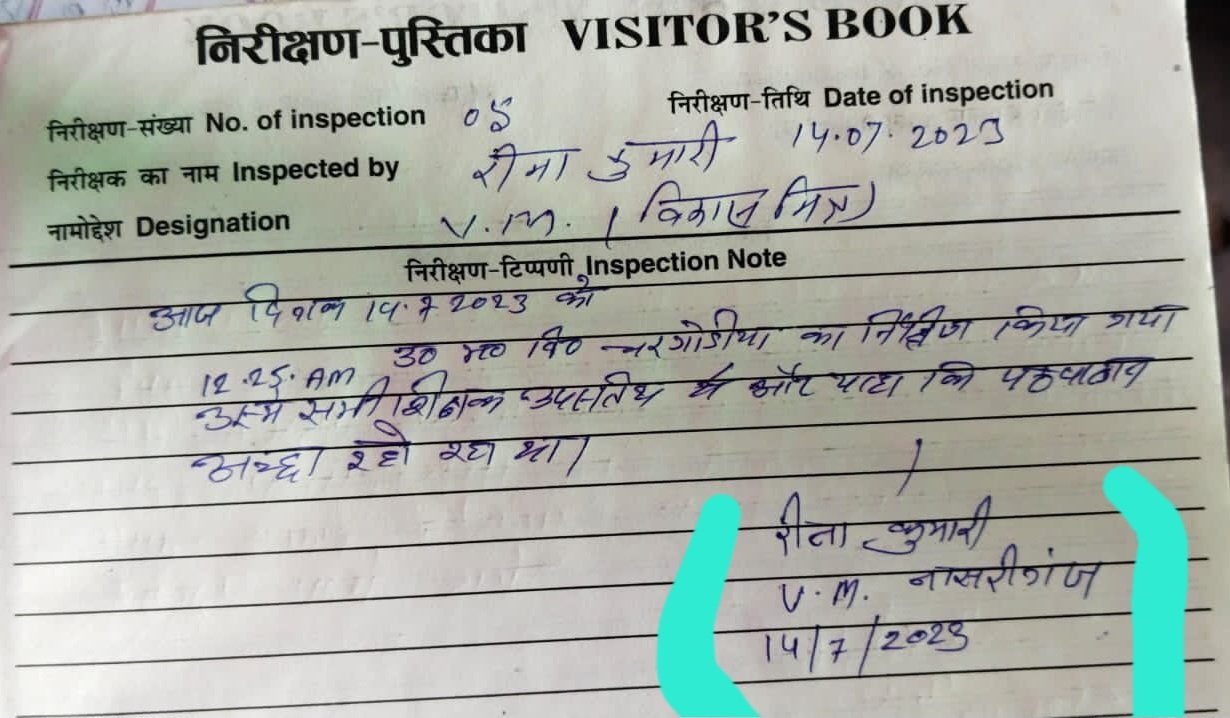 निरीक्षण-पुस्तिका VISITOR'S BOOK
निरीक्षण-संख्या No. of inspection 05
निरीक्षण-तिथि Date of inspection
14.07.2023
निरीक्षक का नाम Inspected by रीना कुमारी
नामोद्देश Designation V.M. (विकास मित्र)
निरीक्षण-टिप्पणी Inspection Note
आज दिनांक 14.7.2023 को
12.25.AM उ० म० वि० का किया गया
उसमें सभी शिक्षक थे और कि
अच्छा रहा था।
रीना कुमारी
V.M. नासरीगंज
14/7/2023